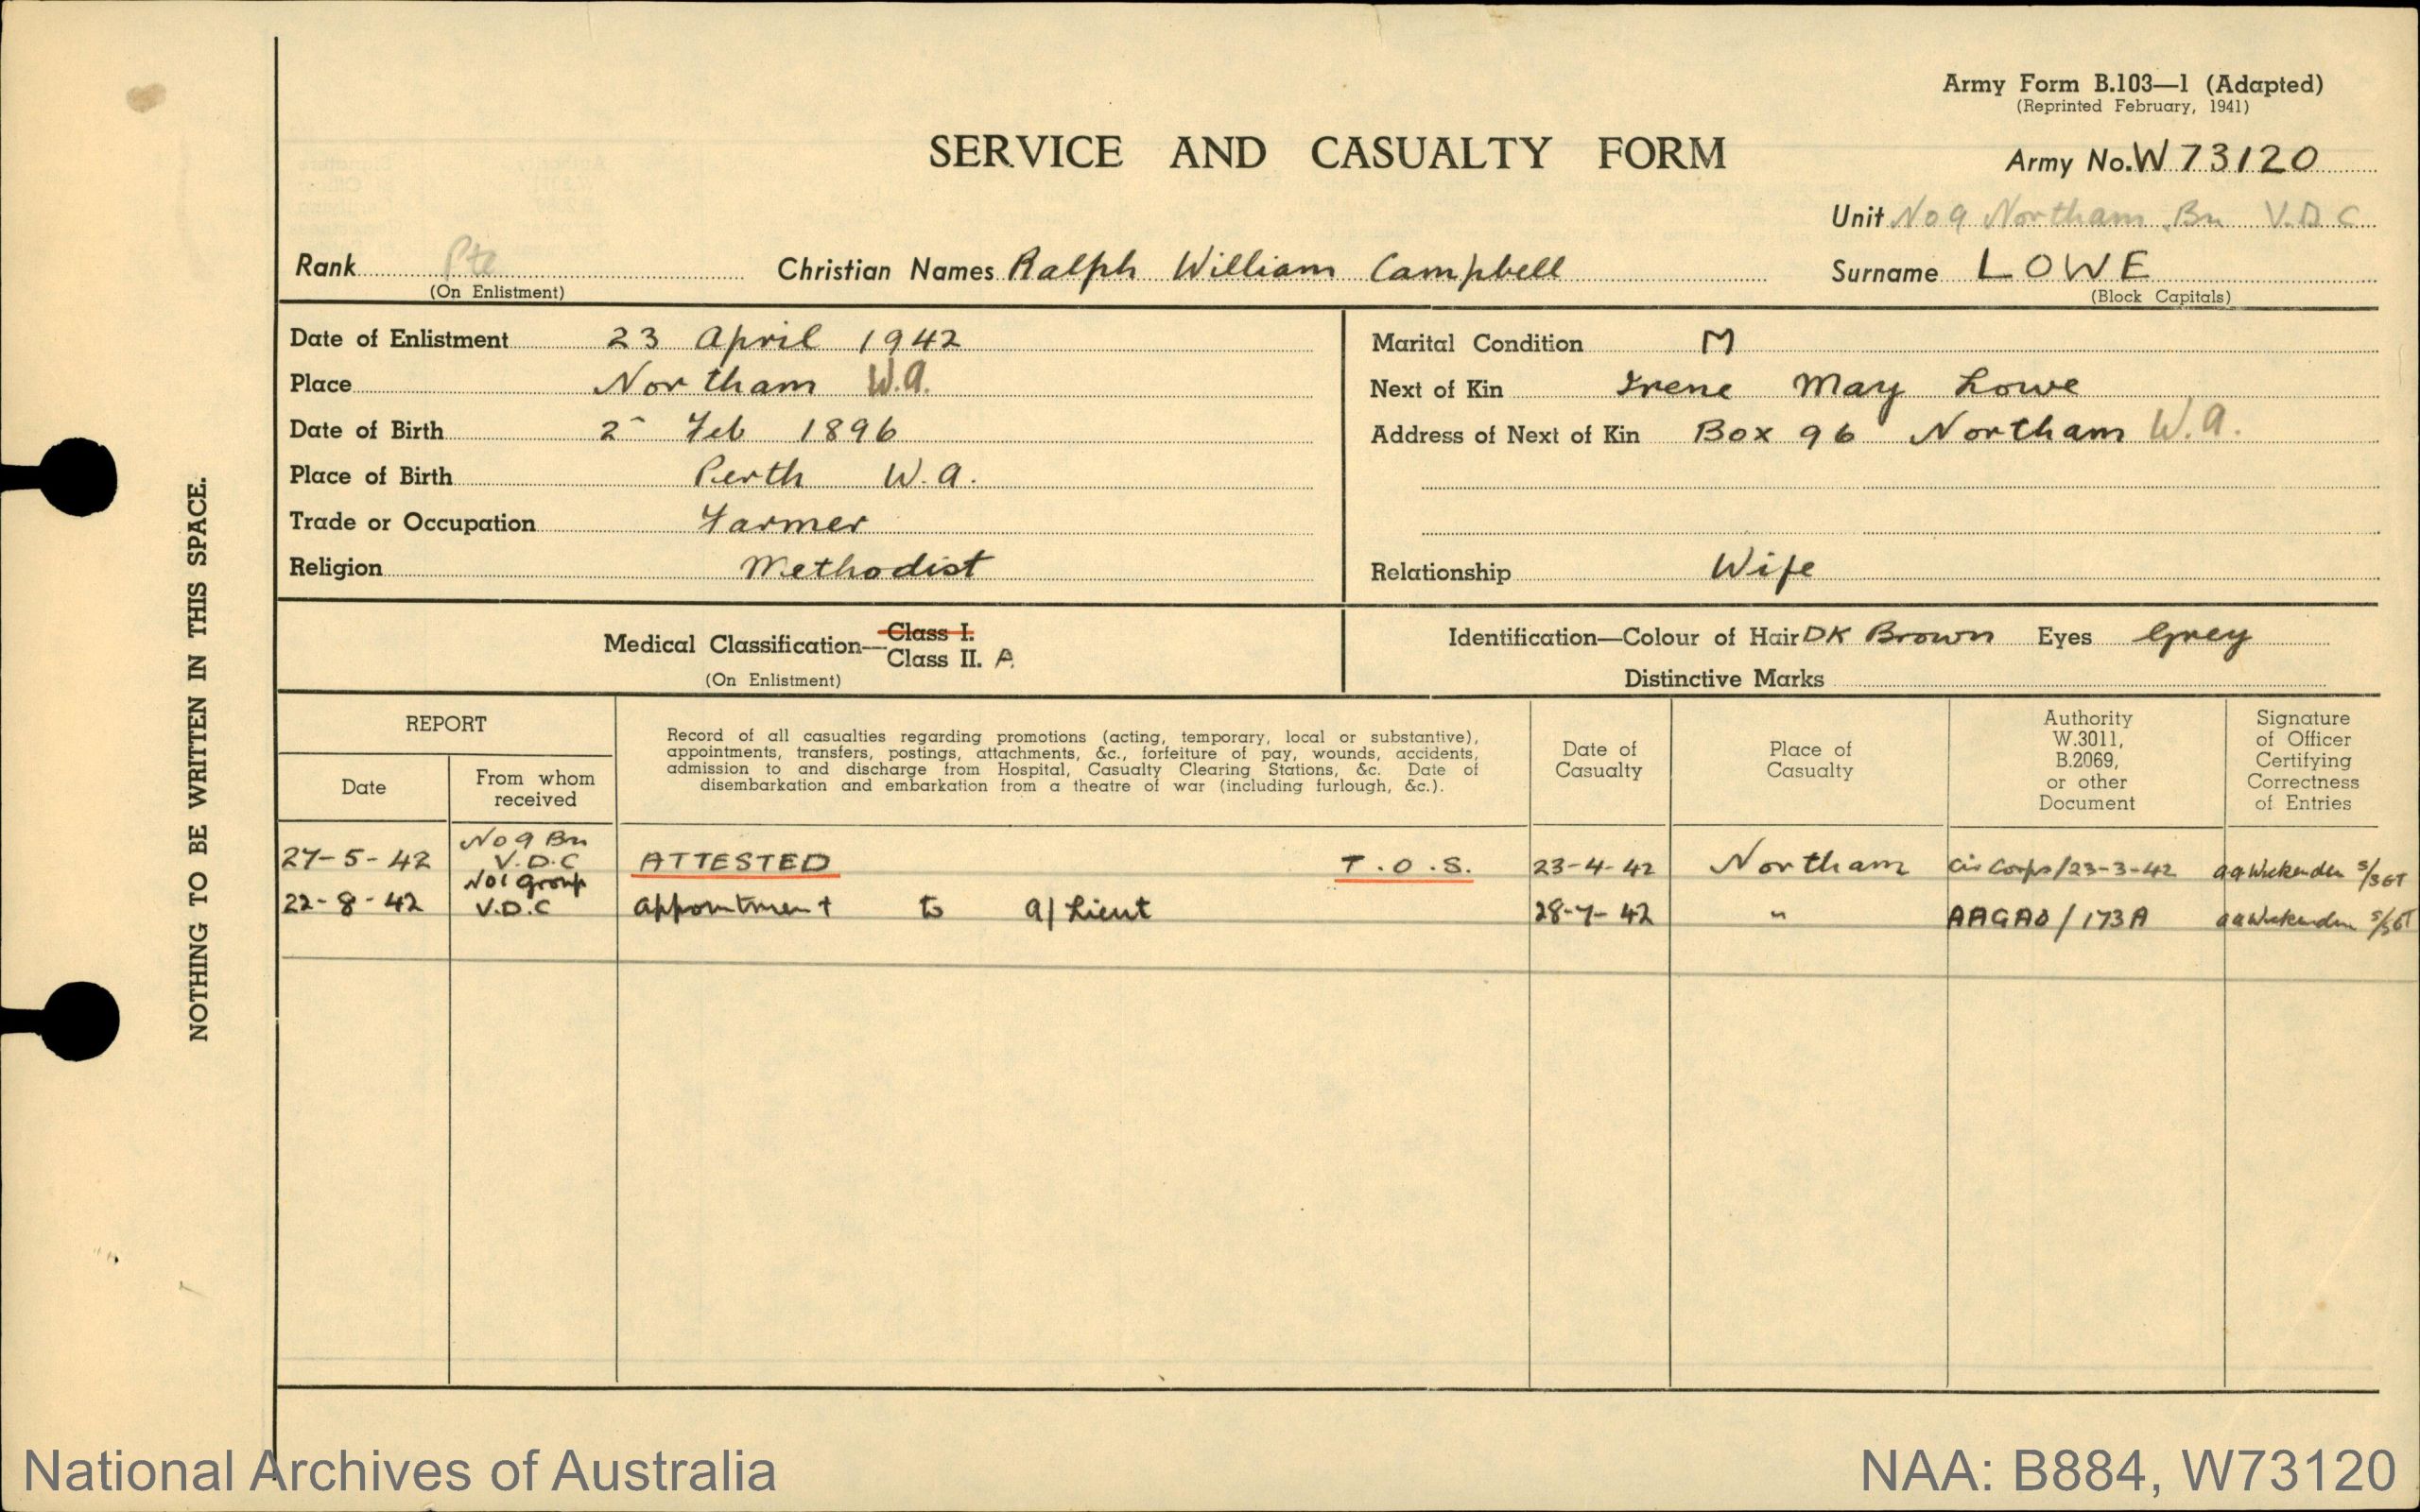 Army Form B.103—1 (Adapted)
(Reprinted February, 1941)
SERVICE AND CASUALTY FORM
Army No. W73120
Unit No 9 Northam Bn V.D.C
Rank Pte Christian Names Ralph William Campbell Surname LOWE
(On Enlistment) (Block Capitals)
Date of Enlistment 23 April 1942
Place Northam W.A.
Date of Birth 2- Feb 1896
Place of Birth Perth W.A.
Trade or Occupation Farmer
Religion Methodist
Marital Condition M
Next of Kin Irene May Lowe
Address of Next of Kin Box 96 Northam W.A.
Relationship Wife
Medical Classification— Class I.
Class II. A
(On Enlistment)
Identification—Colour of Hair DK Brown Eyes Grey
Distinctive Marks
REPORT
Date
From whom received
Record of all casualties regarding promotions (acting, temporary, local or substantive),
appointments, transfers, postings, attachments, &c., forfeiture of pay, wounds, accidents,
admission to and discharge from Hospital, Casualty Clearing Stations, &c. Date of
disembarkation and embarkation from a theatre of war (including furlough, &c.).
Date of
Casualty
Place of
Casualty
Authority
W.3011,
B.2069,
or other
Document
Signature
of Officer
Certifying
Correctness
of Entries
27-5-42 No 9 Bn V.D.C ATTESTED T.O.S. 23-4-42 Northam Corps/23-3-42 S/SGT
22-8-42 No 1 Group V.D.C appointment to a/Lieut 28-7-42 " AAGAO/173A S/SGT
NOTHING TO BE WRITTEN IN THIS SPACE.
National Archives of Australia
NAA: B884, W73120